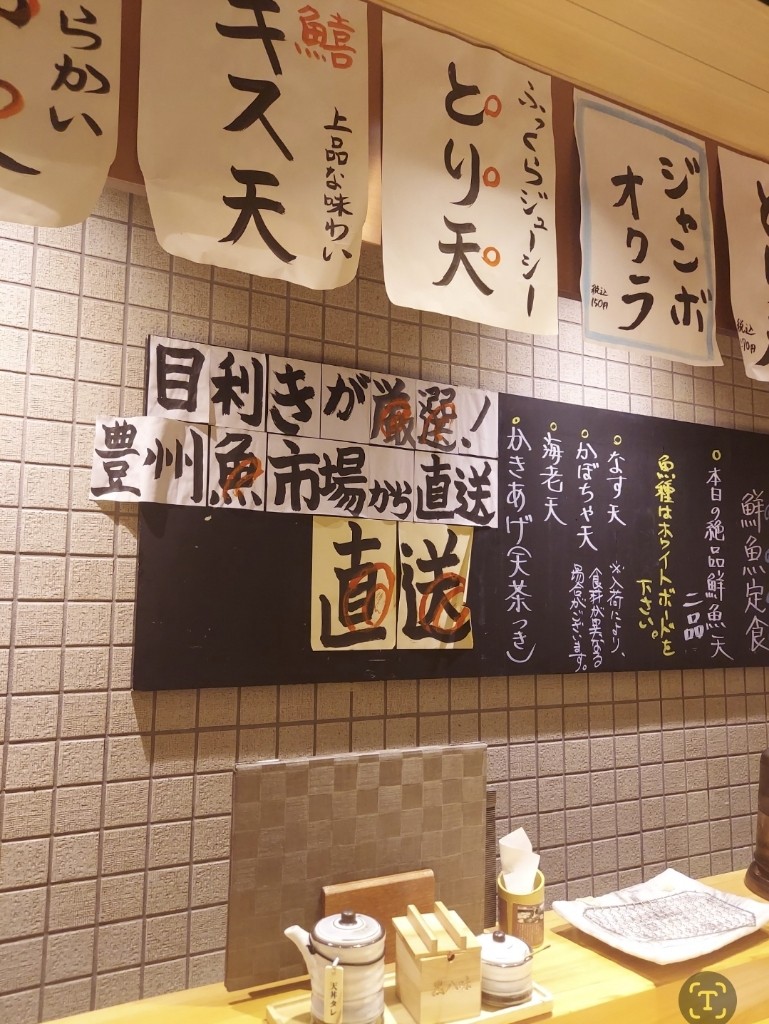 らかい
鱚
キス天
上品な味わい
ふっくらジューシー
とり天
ジャンボ
オクラ
税込
150円
税込
目利きが厳選!
豊州魚市場から直送
直送
鮮魚定食
・本日の絶品鮮魚天
二品
魚種はホワイトボードを
下さい。
・なす天
・かぼちゃ天
・海老天
・かきあげ(天茶つき)
※入荷により、
食材が異なる
場合がございます。
天丼タレ